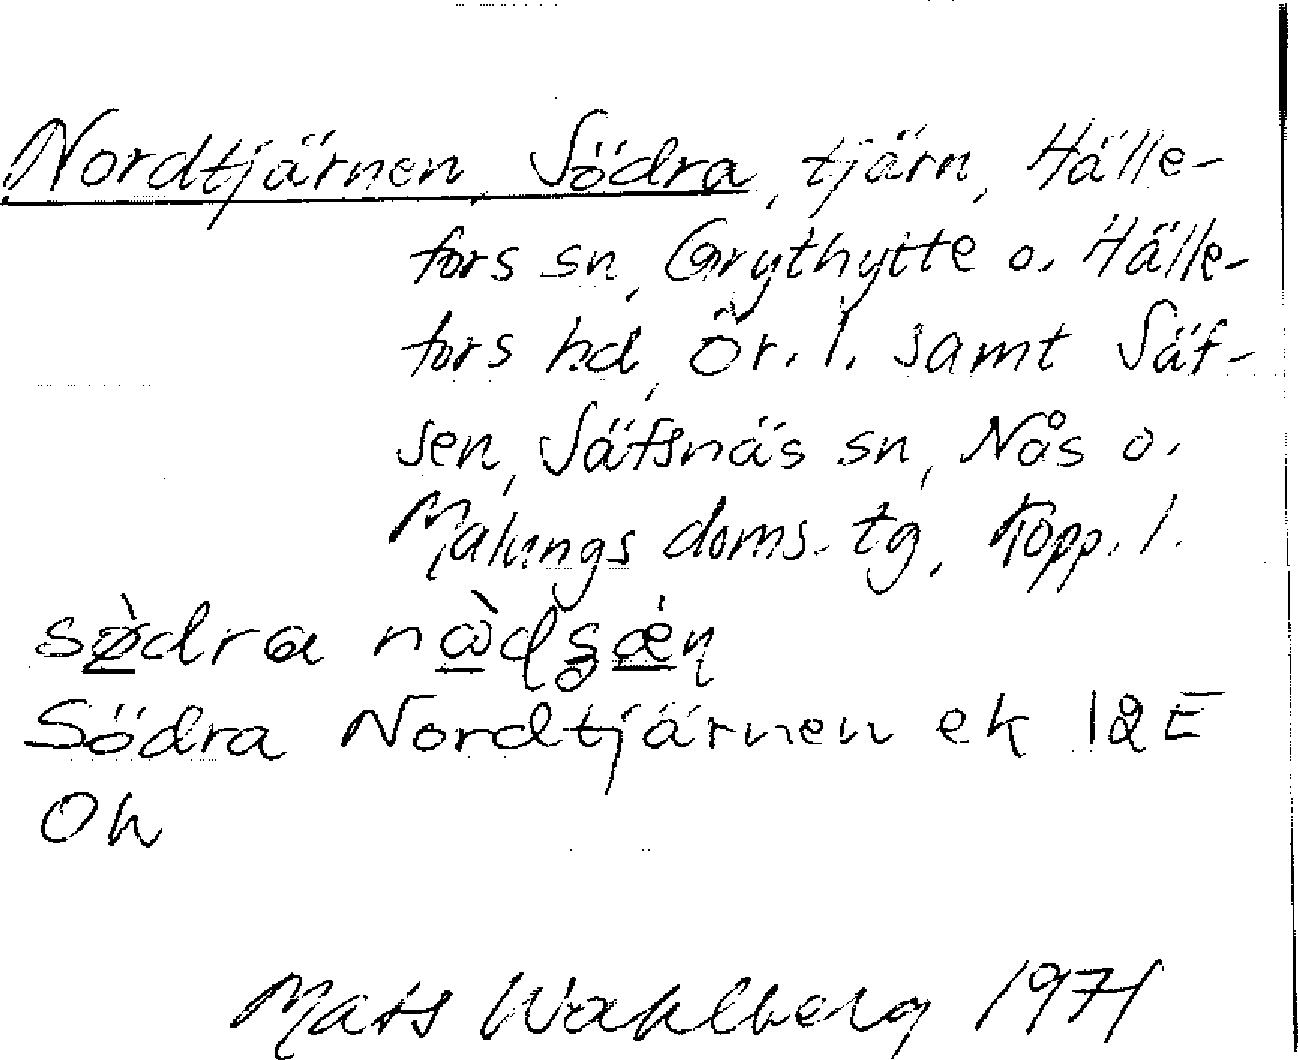 Nordtjärnen, Södra, tjärn, Hälle-
fors sn, Grythytte o. Hälle-
fors hd, Ör. l. samt Säf-
sen, Säfsnäs sn, Nås o.
Malungs doms. tg, Kopp. l.
Södra Nordtjärnen ek 12 E
Oh
Mats Wahlberg 1971